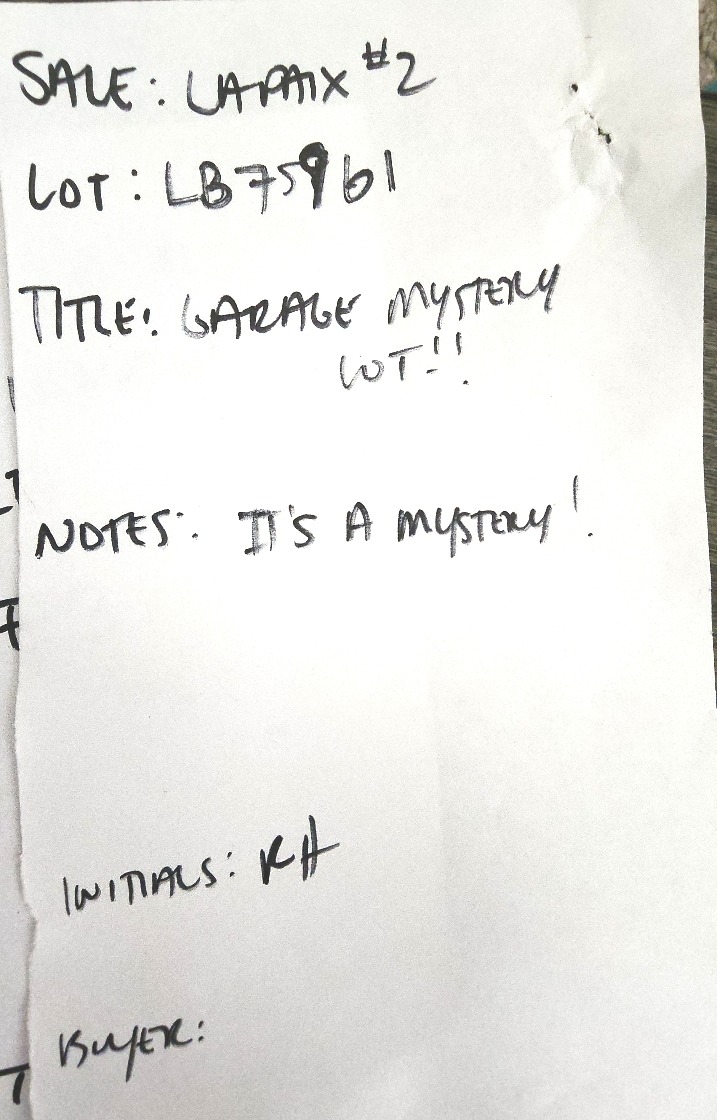 SALE: LAPAIX #2
LOT: LB75961
TITLE: GARAGE MYSTERY
LOT!!
NOTES: IT'S A MYSTERY!
INITIALS: RH
BUYER: